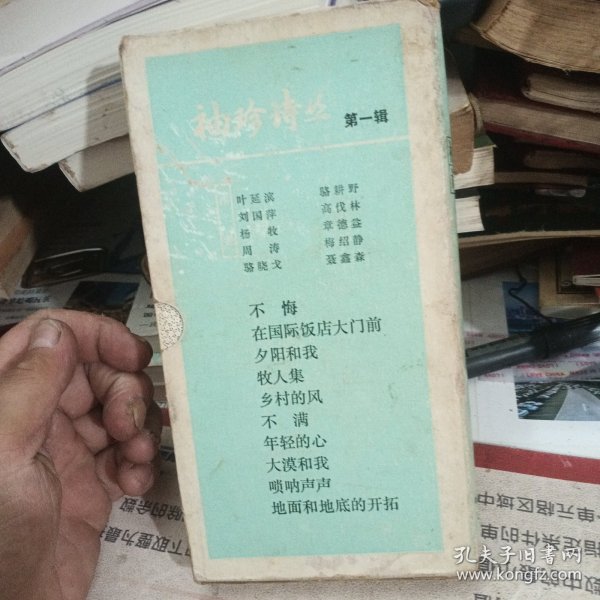 袖珍诗丛 第一辑
叶延滨
刘国萍
杨牧
周涛
骆晓戈
骆耕野
高伐林
章德益
梅绍静
聂鑫森
不悔
在国际饭店大门前
夕阳和我
牧人集
乡村的风
不满
年轻的心
大漠和我
唢呐声声
地面和地底的开拓
孔夫子旧书网
www.kongfz.com